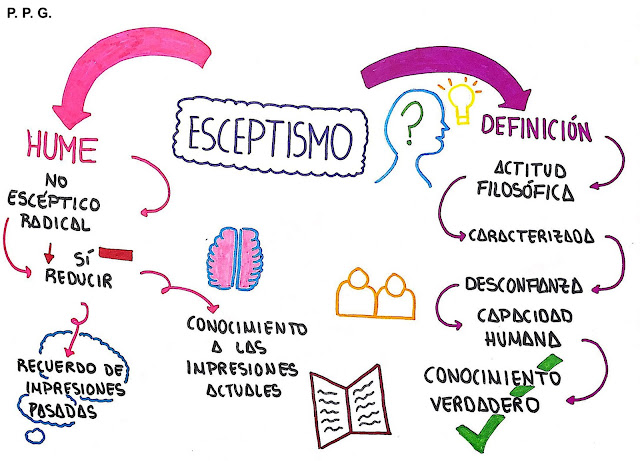 P. P. G.
ESCEPTISMO
HUME
NO
ESCÉPTICO
RADICAL
SÍ
REDUCIR
RECUERDO DE
IMPRESIONES
PASADAS
CONOCIMIENTO
A LAS
IMPRESIONES
ACTUALES
?
DEFINICIÓN
ACTITUD
FILOSÓFICA
CARACTERIZADA
DESCONFIANZA
CAPACIDAD
HUMANA
CONOCIMIENTO
VERDADERO